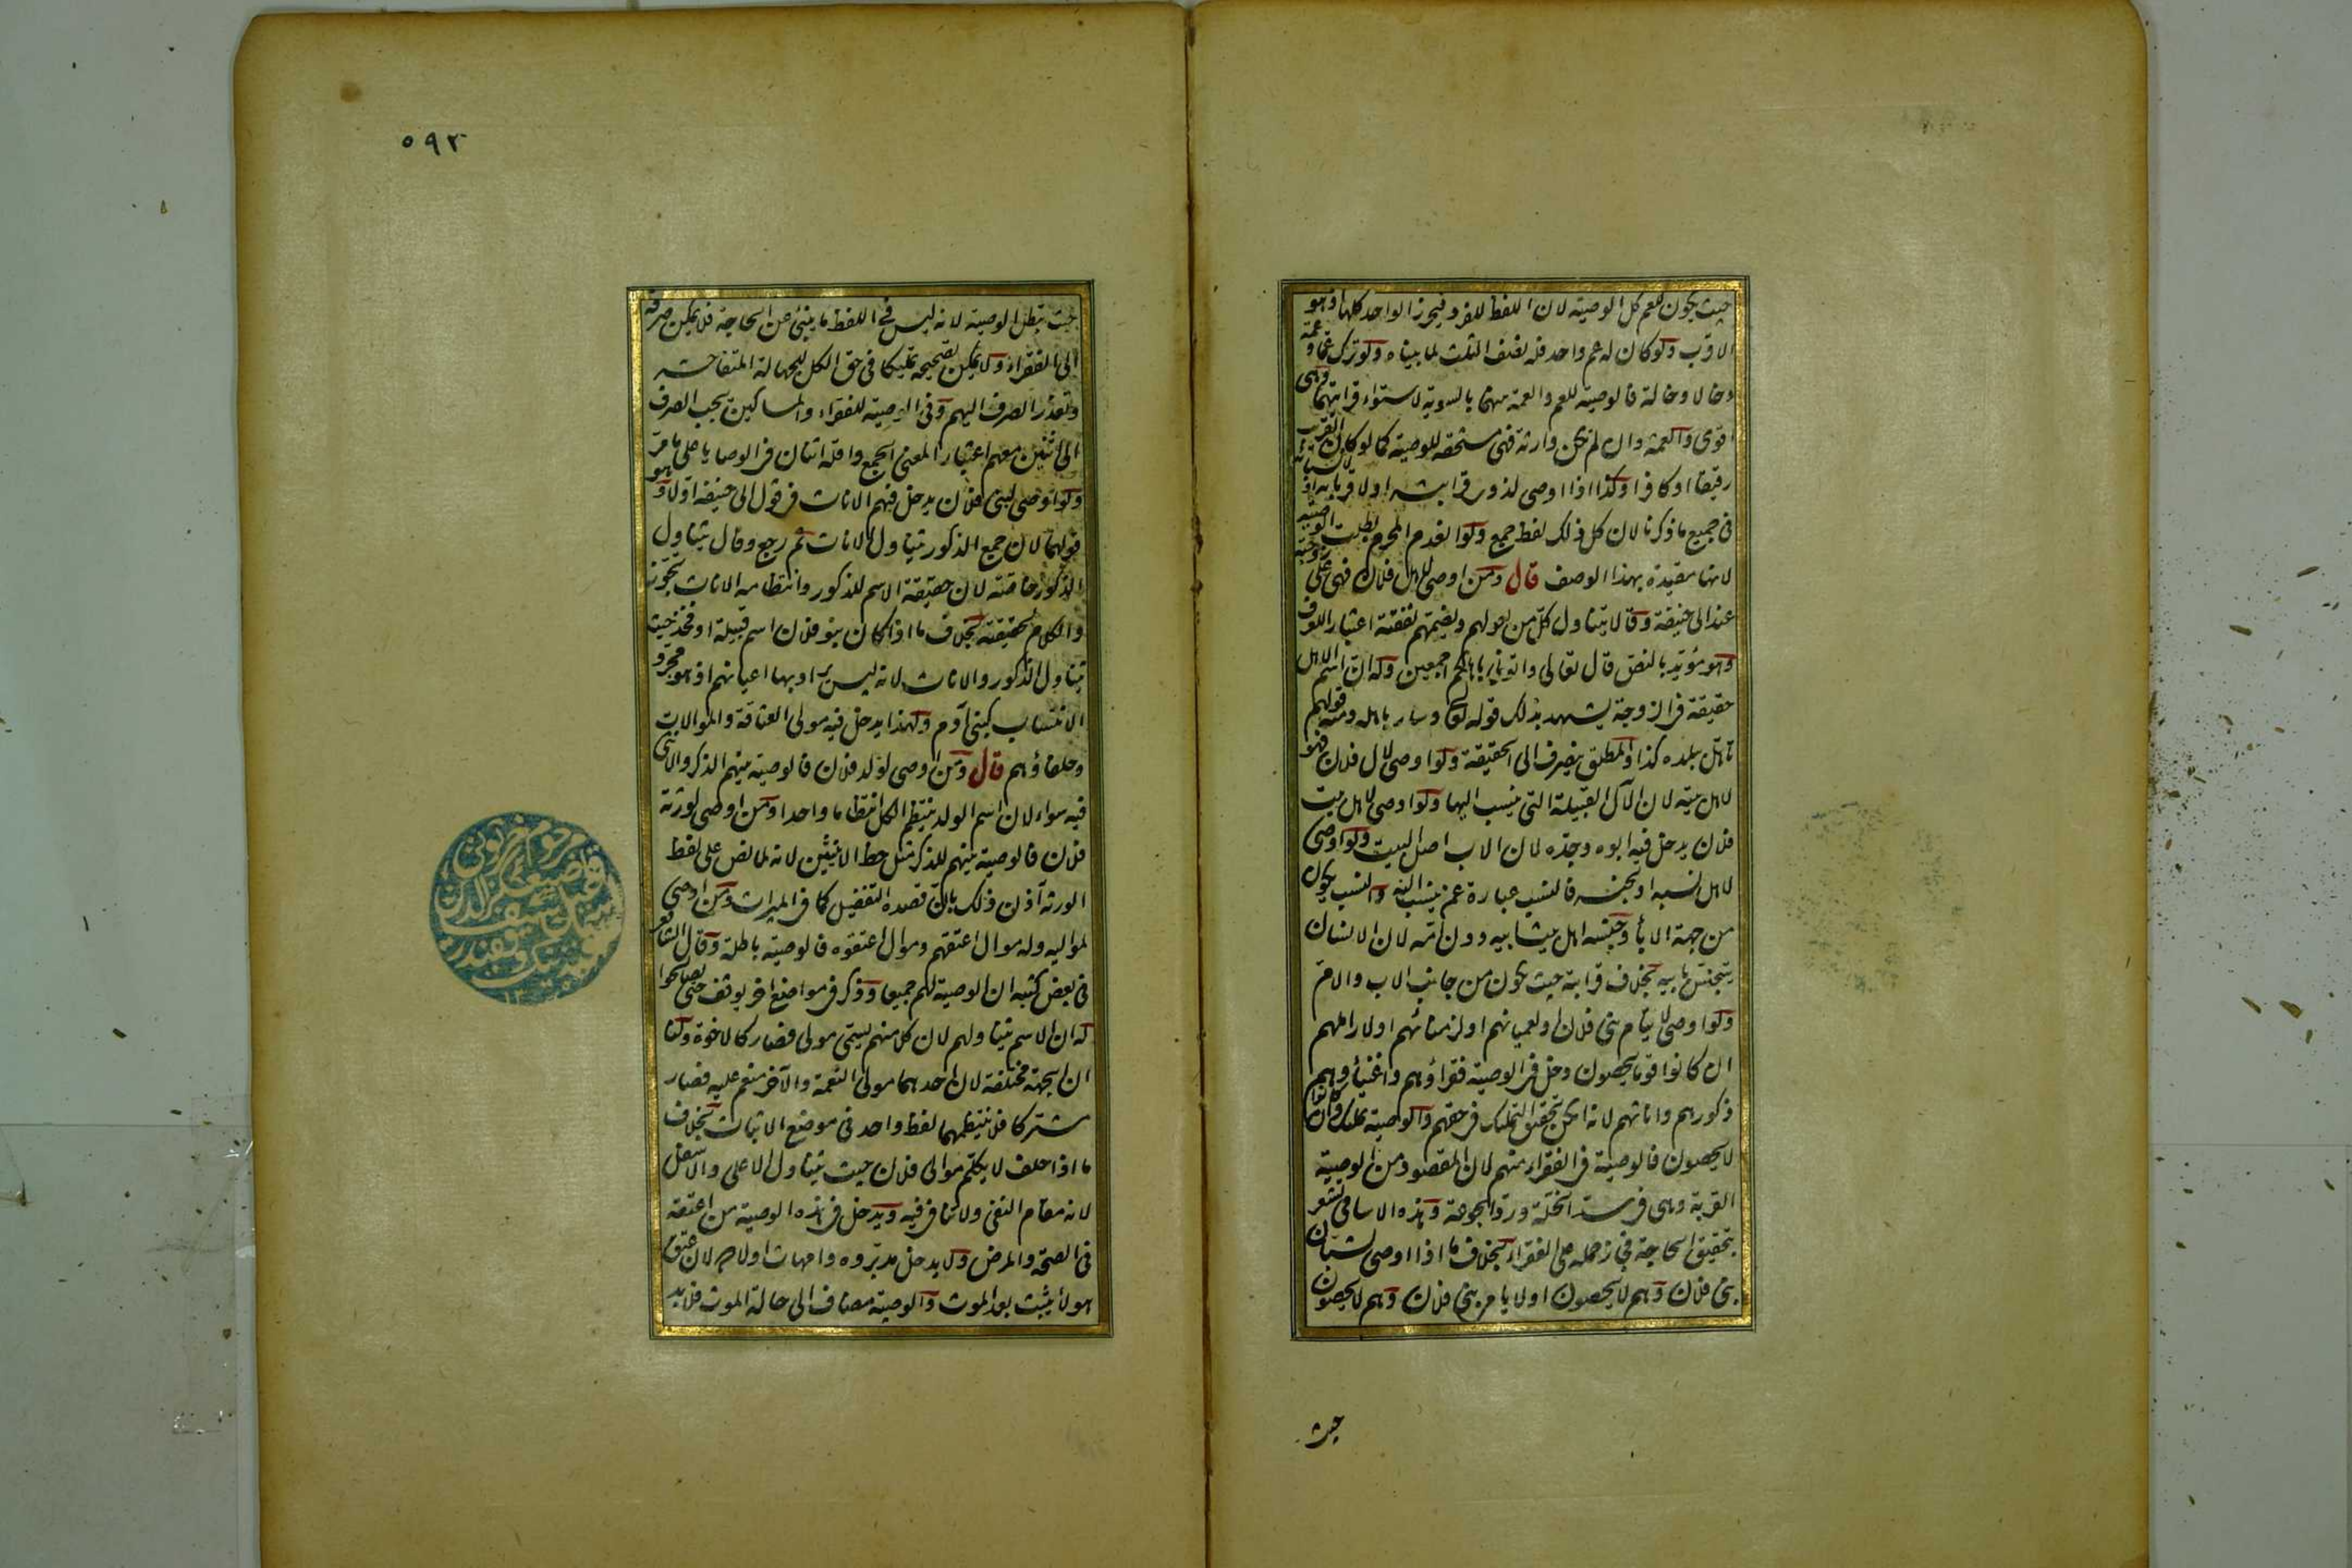 حيث يكون للعم كل الوصية لان اللفظ للفرد فيحرز الواحد كلها اذ هو
الاقرب ولو كان له عم واحد فله نصف الثلث لما بيناه ولو ترك عما وعمة
وخالا وخالة فالوصية للعم والعمة بينهما بالسوية لاستواء قرابتهما وهى
اقوى والعمة وان لم تكن وارثة فهى مستحقة للوصية كما لو كان القريب
رقيقا او كافرا وكذا اذا اوصى لذوى قرابته او لاقربائه او
فى جميع ما ذكرنا لان كل ذلك لفظ جمع ولو انعدم المحرم بطلت الوصية
لانها مقيدة بهذا الوصف قال ومن اوصى لاهل فلان فهى على زوجته
عند ابى حنيفة وقالا يتناول كل من يعولهم وتضمهم نفقته اعتبارا للعرف
وهو مؤيد بالنص قال تعالى واتونى باهلكم اجمعين وله ان اسم الاهل
حقيقة فى الزوجة يشهد بذلك قوله تعالى وسار باهله ومنه قولهم
تاهل ببلدة كذا والمطلق ينصرف الى الحقيقة ولو اوصى لال فلان فهو
لاهل بيته لان الآل القبيلة التى ينسب اليها ولو اوصى لاهل بيت
فلان يدخل فيه ابوه وجده لان الاب اصل البيت ولو اوصى
لاهل نسبه او لجنسه فالنسب عبارة عمن ينسب اليه والنسب يكون
من جهة الاباء وجنسه اهل بيت ابيه دون امه لان الانسان
يتجنس بابيه بخلاف قرابته حيث يكون من جانب الاب والام
ولو اوصى لايتام بنى فلان او لعميانهم او لزمنائهم او لاراملهم
ان كانوا قوما يحصون دخل فى الوصية فقراؤهم واغنياؤهم
ذكورهم واناثهم لانه امكن تحقيق التمليك فى حقهم والوصية تمليك وان كانوا
لا يحصون فالوصية فى الفقراء منهم لان المقصود من الوصية
القربة وهى فى سد الخلة ورد الجوعة وهذه الاسامى تشعر
بتحقيق الحاجة فجاز حمله على الفقراء بخلاف ما اذا اوصى لشبان
بنى فلان وهم لا يحصون او لايامى بنى فلان وهم لا يحصون
حيث
٥٩٢
حيث تبطل الوصية لانه ليس فى اللفظ ما ينبئ عن الحاجة فلا يمكن صرفه
الى الفقراء ولا يمكن تصحيحه تمليكا فى حق الكل للجهالة المتفاحشة
وتعذر الصرف اليهم وفى الوصية للفقراء والمساكين يجب الصرف
الى اثنين منهم اعتبارا لمعنى الجمع واقله اثنان فى الوصايا على ما مر
ولو اوصى لبنى فلان يدخل فيهم الاناث فى قول ابى حنيفة اولا وهو
قولهما لان جمع الذكور يتناول الاناث ثم رجع وقال يتناول
الذكور خاصة لان حقيقة الاسم للذكور وانتظامه الاناث تجوز
والكلام لحقيقته بخلاف ما اذا كان بنو فلان اسم قبيلة او فخذ حيث
يتناول الذكور والاناث لانه ليس يراد بها اعيانهم اذ هو مجرد
الانتساب كبنى آدم ولهذا يدخل فيه مولى العتاقة والموالات
وحلفاؤهم قال ومن اوصى لولد فلان فالوصية بينهم الذكر والانثى
فيه سواء لان اسم الولد ينتظم الكل انتظاما واحدا ومن اوصى لورثة
فلان فالوصية بينهم للذكر مثل حظ الانثيين لانه لما نص على لفظ
الورثة آذن ذلك بان قصده التفضيل كما فى الميراث ومن اوصى
لمواليه وله موال اعتقهم وموال اعتقوه فالوصية باطلة وقال الشافعى
فى بعض كتبه ان الوصية لهم جميعا وذكر فى مواضع اخر يوقف حتى يصالحوا
له ان الاسم يتناولهم لان كلا منهم يسمى مولى فصار كالاخوة ولنا
ان الجهة مختلفة لان احدهما مولى النعمة والآخر منعم عليه فصار
مشتركا فلا ينتظمهما لفظ واحد فى موضع الاثبات بخلاف
ما اذا حلف لا يكلم موالى فلان حيث يتناول الاعلى والاسفل
لانه مقام النفى ولا تنافى فيه ويدخل فى هذه الوصية من اعتقه
فى الصحة والمرض ولا يدخل مدبروه وامهات اولاده لان عتق
هولاء يثبت بعد الموت والوصية مضاف الى حالة الموت فلا بد